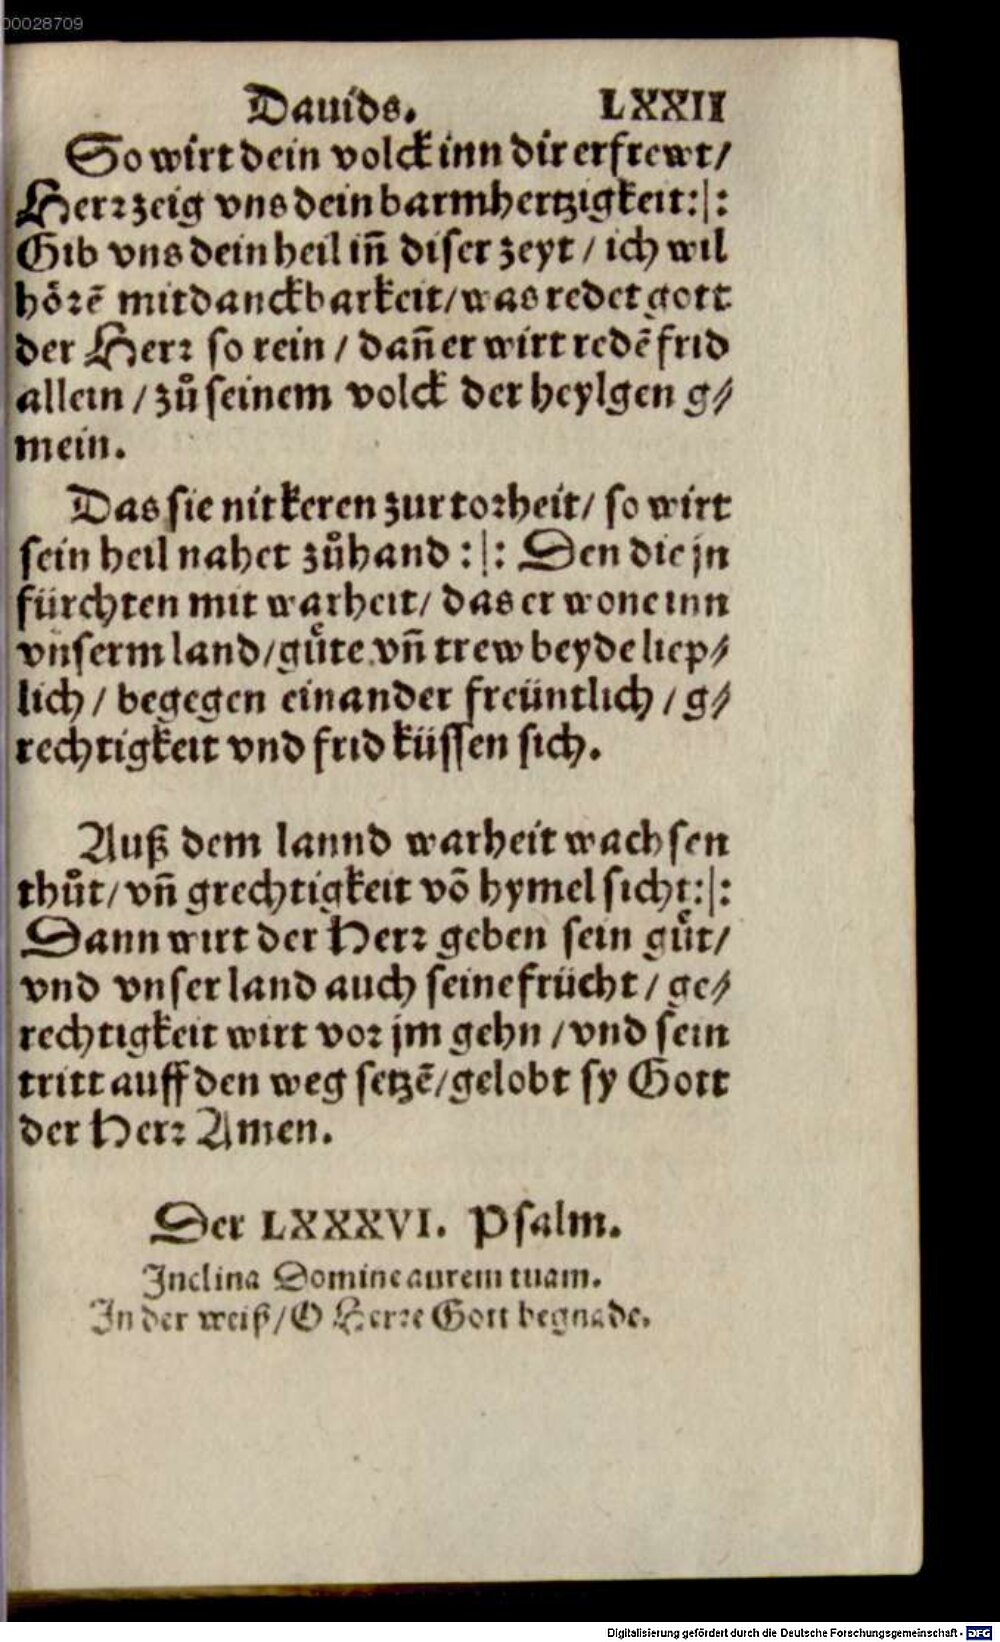 00028709
Dauids. LXXII
So wirt dein volck inn dir erfrewt/
Herꝛ zeig vns dein barmhertzigkeit :|:
Gib vns dein heil in̄ diser zeyt / ich wil
hoͤꝛē mit danckbarkeit/was redet gott
der Herꝛ so rein / dañ er wirt redē frid
allein / zuͦ seinem volck der heylgen g⸗
mein.
Das sie nit keren zur toꝛheit/ so wirt
sein heil nahet zuͦhand :|: Den die jn
fürchten mit warheit/ das er wone inn
vnserm land/guͤte vñ trew beyde liep⸗
lich / begegen einander freüntlich / g⸗
rechtigkeit vnd frid küssen sich.
Auß dem lannd warheit wachsen
thuͦt/vñ grechtigkeit võ hymel sicht:|:
Dann wirt der Herꝛ geben sein guͤt/
vnd vnser land auch seine frücht / ge⸗
rechtigkeit wirt voꝛ jm gehn /vnd sein
tritt auff den weg setzē/gelobt sy Gott
der Herꝛ Amen.
Der LXXXVI. Psalm.
Inclina Domine aurem tuam.
In der weiß/O Herꝛe Gott begnade.
Digitalisierung gefördert durch die Deutsche Forschungsgemeinschaft - DFG